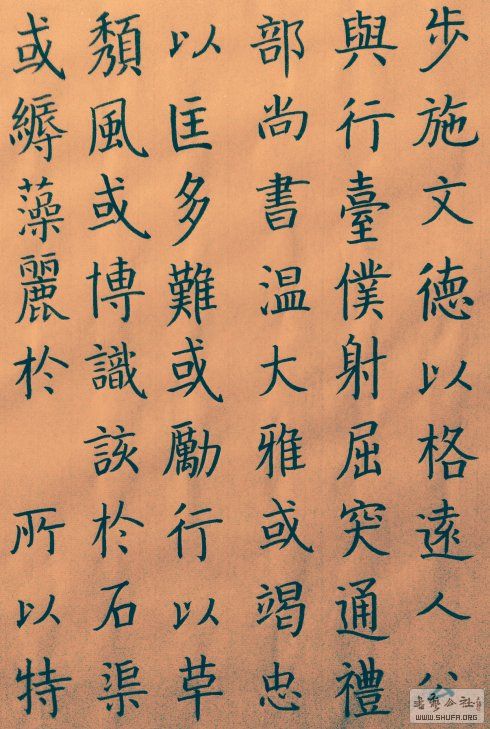 步施文德以格遠人公
與行臺僕射屈突通禮
部尚書温大雅或竭忠
以匡多難或勵行以草
頽風或博識該於石渠
或縟藻麗於 所以特
WWW.SHUFA.ORG